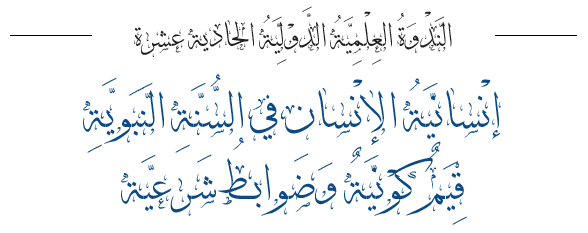 النَّدْوَةُ العِلْمِيَّةُ الدَّوْلِيَّةُ الحَادِيةَ عَشِرَة
إِنْسَانِيَّةُ الإِنْسَان فِي السُّنَّةِ النَّبَوِيَّةِ
قِيَمٌ كَوْنِيَّةٌ وَضَوابِطُ شَرعِيَّة